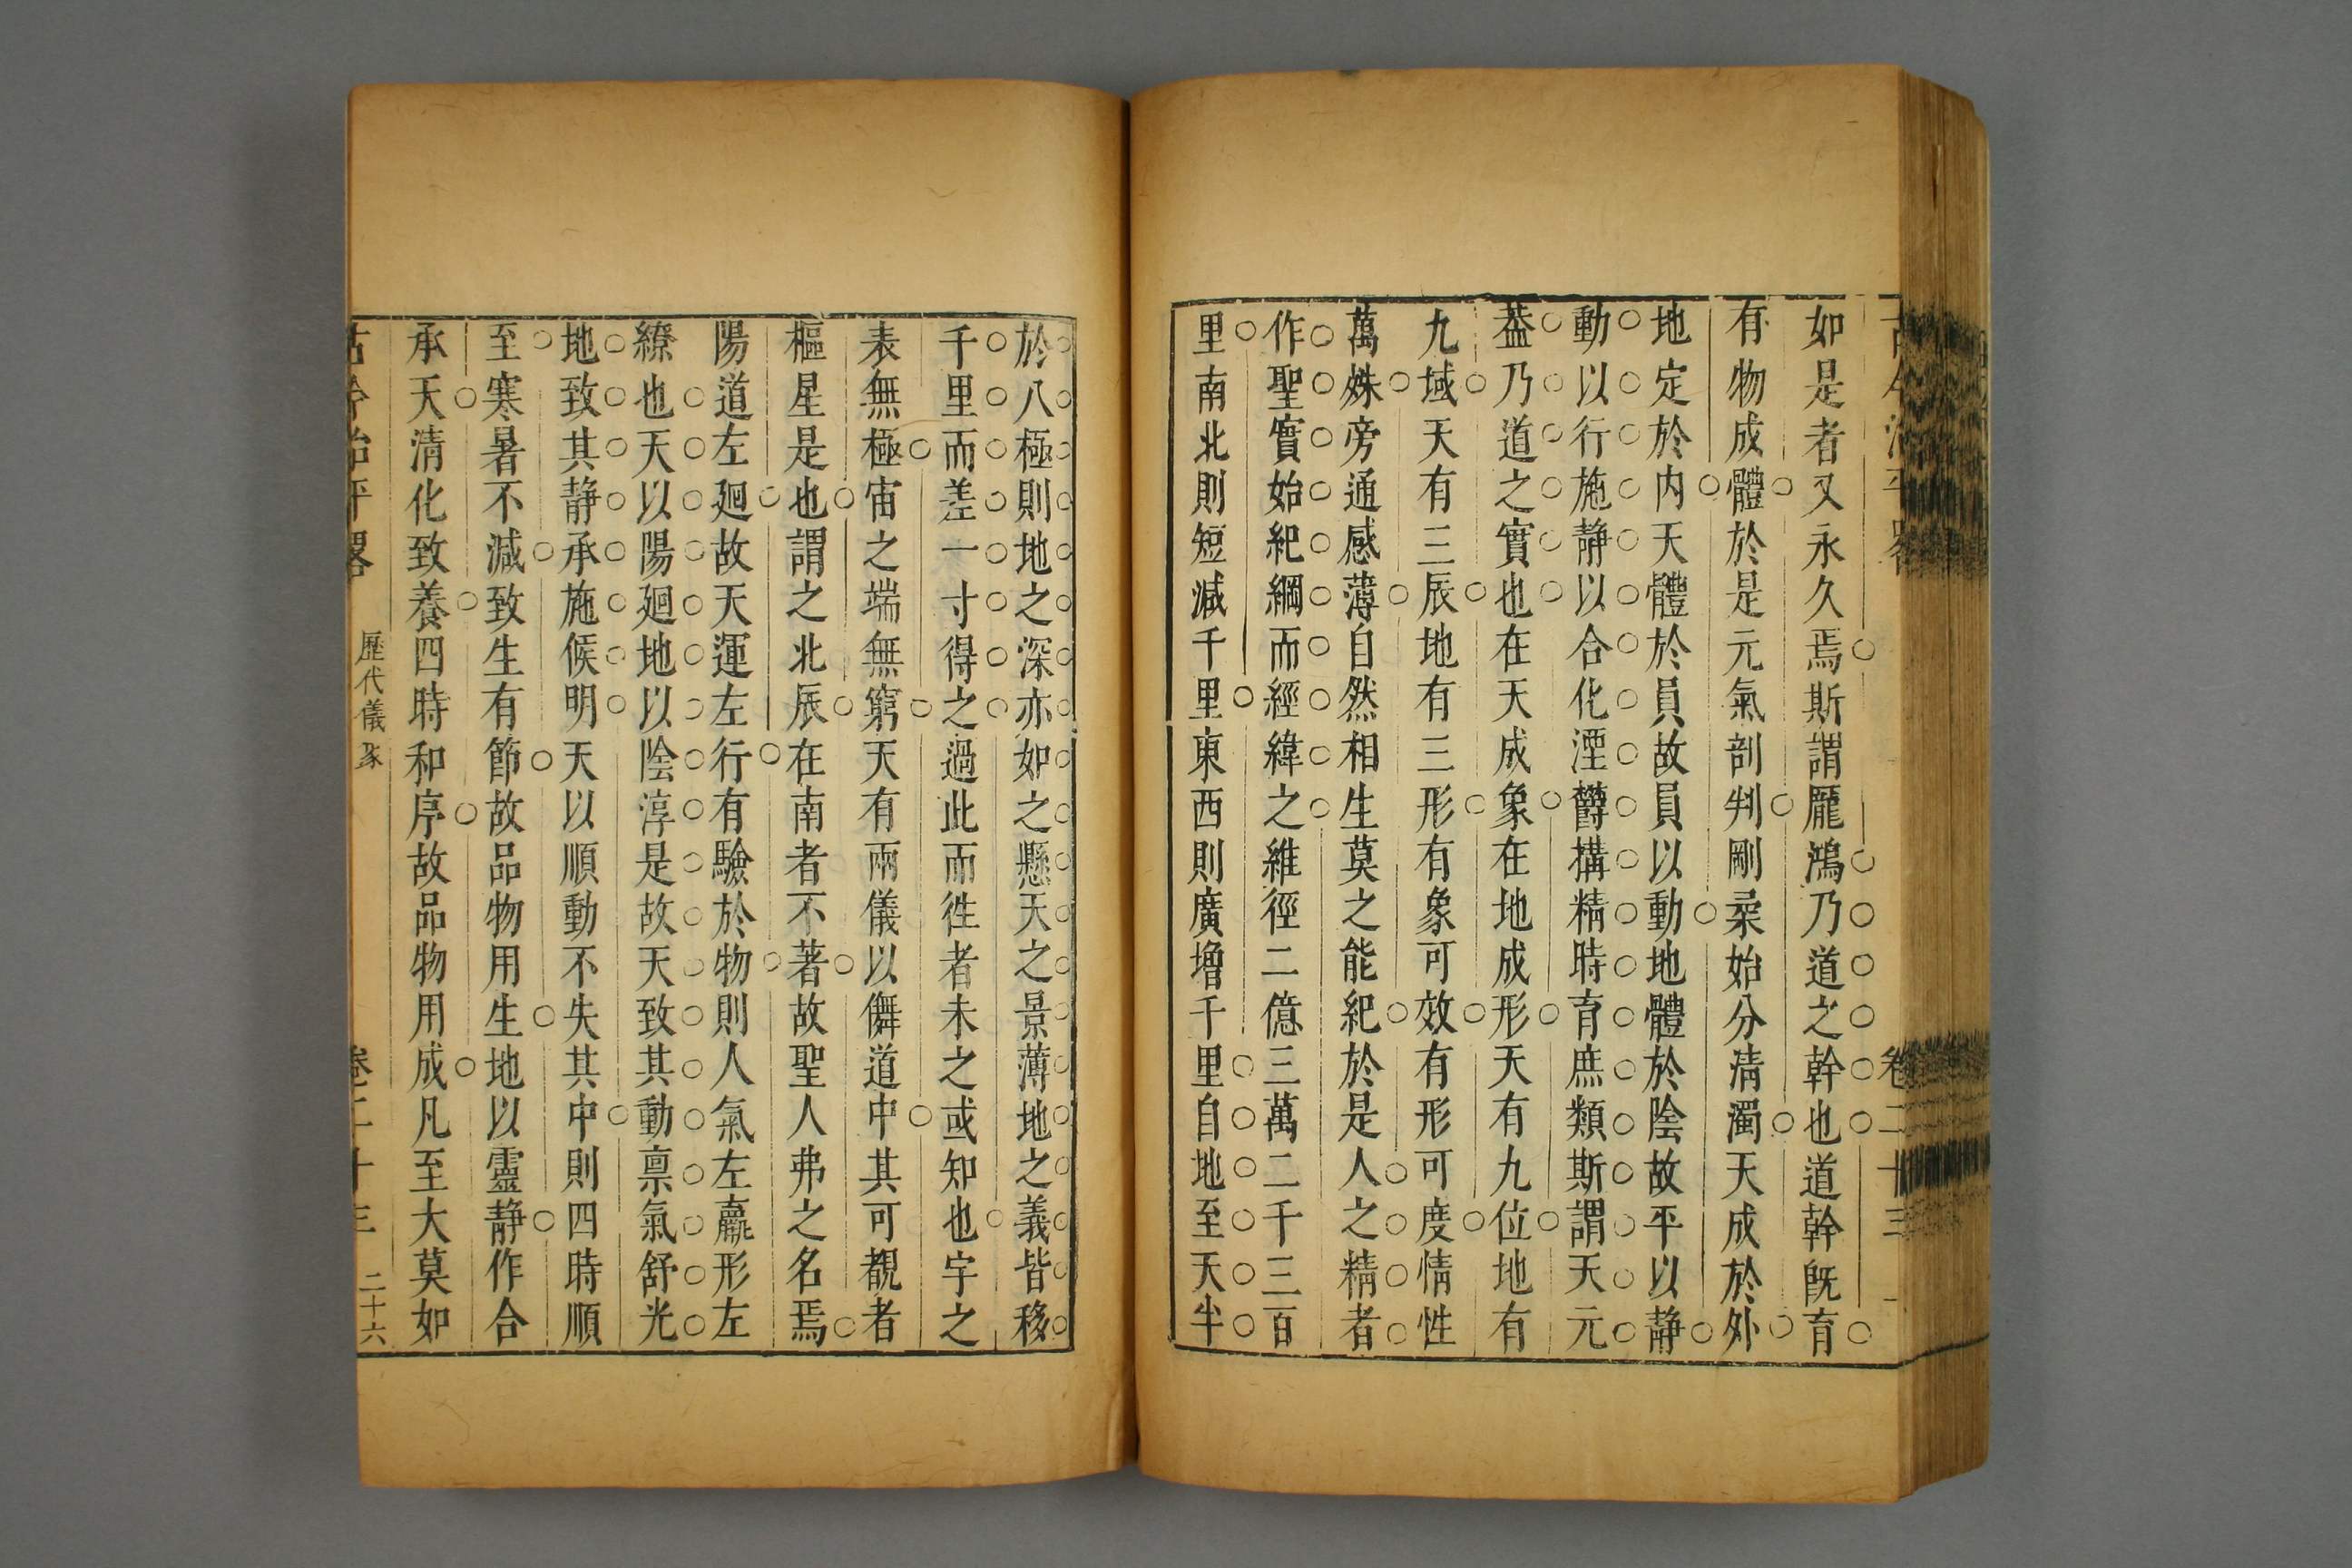 古今治平畧
卷二十三
如是者又永久焉斯謂厖鴻乃道之幹也道幹旣育
有物成體於是元氣剖判剛柔始分清濁天成於外
地定於内天體於員故員以動地體於陰故平以靜
動以行施靜以合化湮欝搆精時育庶類斯謂天元
葢乃道之實也在天成象在地成形天有九位地有
九域天有三辰地有三形有象可效有形可度情性
萬姝旁通感薄自然相生莫之能紀於是人之精者
作聖實始紀綱而經緯之維徑二億三萬二千三百
里南北則短減千里東西則廣增千里自地至天半
於八極則地之深亦如之懸天之景薄地之義皆移
千里而差一寸得之過此而徃者未之或知也宇之
表無極宙之端無窮天有兩儀以儛道中其可覩者
樞星是也謂之北辰在南者不著故聖人弗之名焉
陽道左廻故天運左行有驗於物則人氣左羸形左
繚也天以陽廻地以陰淳是故天致其動禀氣舒光
地致其靜承施候明天以順動不失其中則四時順
至寒暑不減致生有節故品物用生地以靈靜作合
承天清化致養四時和序故品物用成凡至大莫如
古今治平畧
歷代儀象
卷二十三
二十六